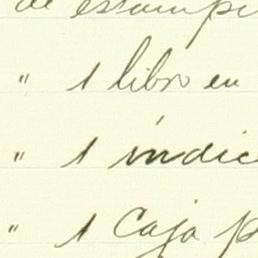 de estampi
" 1 libro en
" 1 indice
" 1 Caja p